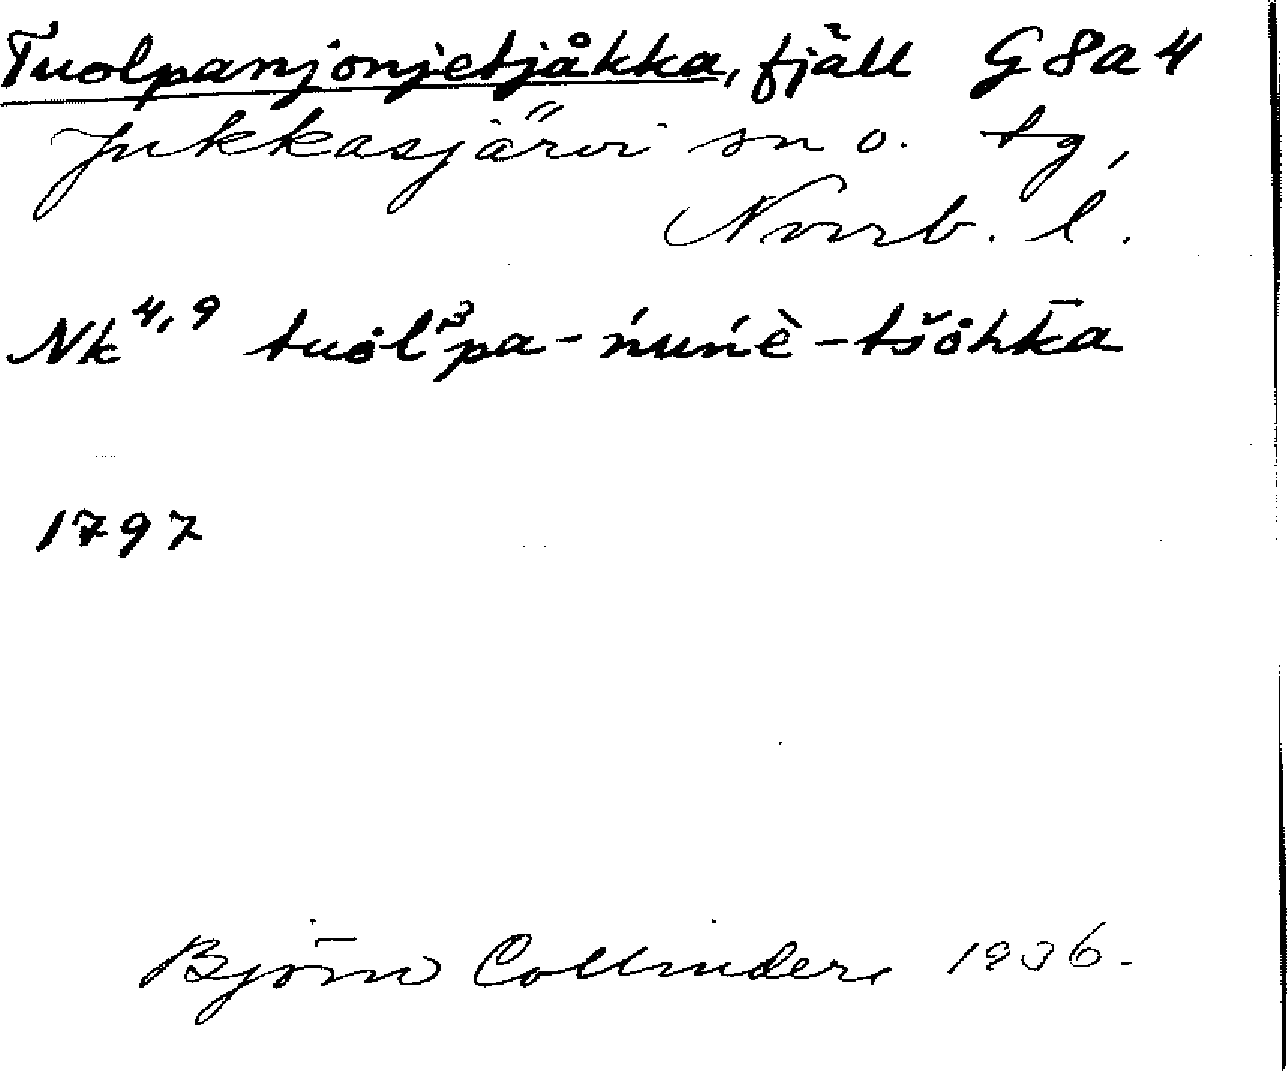 Tuolpanjonjetjåkka, fjäll G8a4
Jukkasjärvi sn o. tg,
Norrb. l.
Nk⁴,⁹ tuål³pa-ńuńè-tšåhkā
1797
Björn Collinder 1936.